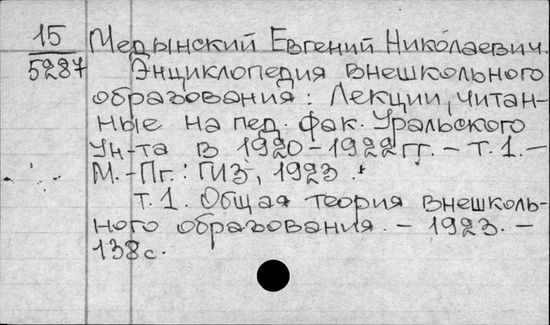 15
5287
Медынский Евгений Николаевич.
Энциклопедия внешкольного
образования: Лекции, читан-
ные на пед. фак. Уральского
Ун-та в 1920-1922 гг. - т. 1. -
М.-Пг.: ГИЗ, 1923.
т. 1. Общая теория внешколь-
ного образования. - 1923. -
138 с.